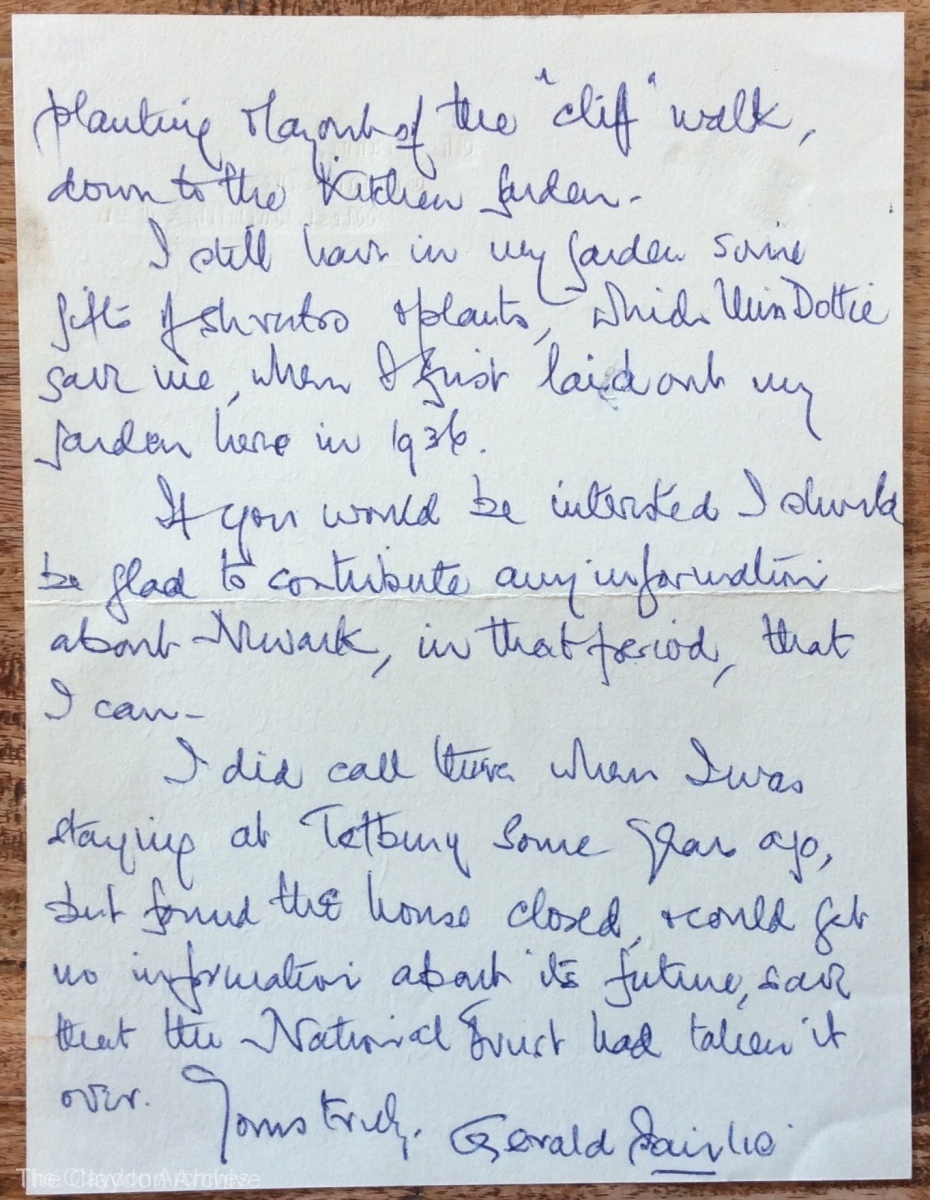 planting & layout of the "cliff" walk,
down to the Kitchen Garden.
I still have in my garden some
gifts of shrubs & plants, which Miss Dottie
gave me, when I first laid out my
garden here in 1936.
If you would be interested I should
be glad to contribute any information
about Newark, in that period, that
I can.
I did call there when I was
staying at Tetbury some years ago,
but found the house closed, & could get
no information about its future, save
that the National Trust had taken it
over.
Yours truly,
Gerald Fairlie
The Claydon Archive